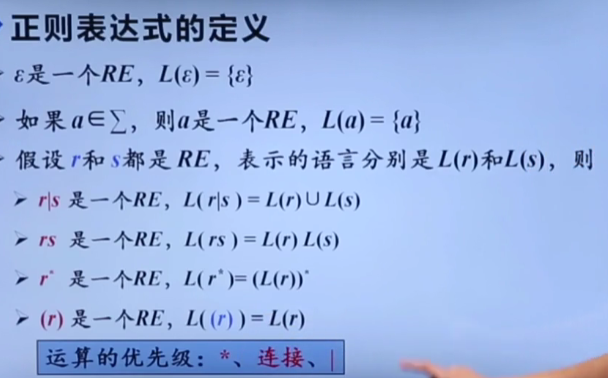 正则表达式的定义
ε是一个RE，L(ε) = {ε}
如果 a∈∑，则a是一个RE，L(a) = {a}
假设 r和 s都是 RE，表示的语言分别是 L(r)和L(s)，则
r|s 是一个RE，L( r|s ) = L(r)∪L(s)
rs 是一个RE，L( rs ) = L(r) L(s)
r* 是一个RE，L( r* )= (L(r))*
(r) 是一个RE，L( (r) ) = L(r)
运算的优先级：*、连接、|